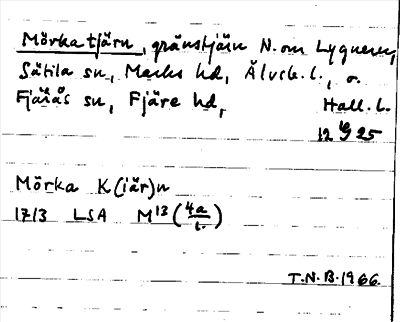 Mörka tjärn, gränstjärn N. om Lygnern,
Sätila sn, Marks hd, Älvsb. l., o.
Fjärås sn, Fjäre hd, Hall. l.
Mörka K(iär)n
1713 LSA M¹³ (4a/1.)
T.N.B. 1966.